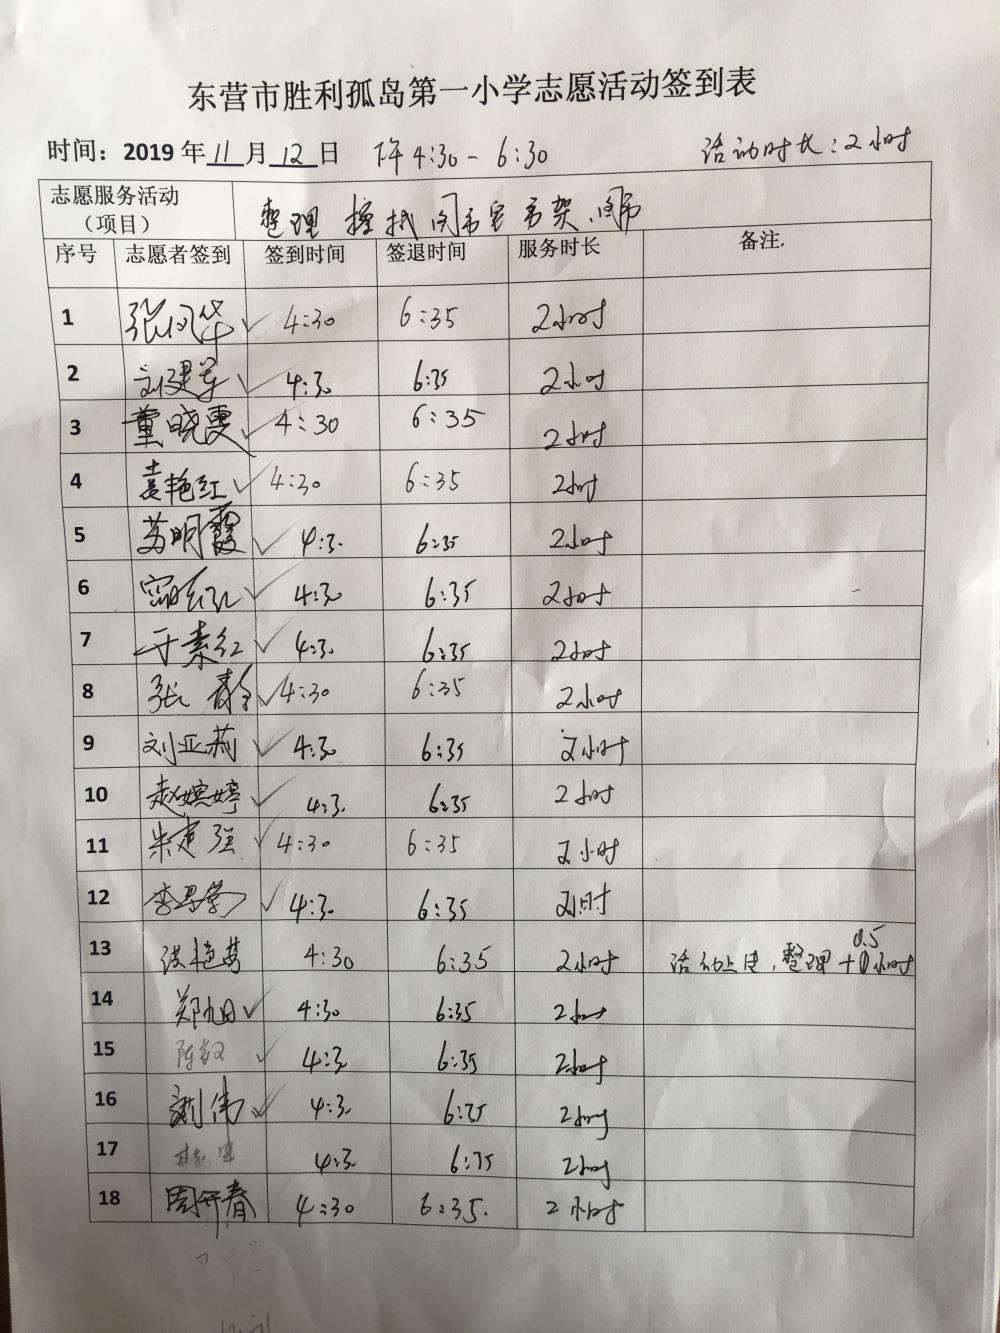 东营市胜利孤岛第一小学志愿活动签到表
时间：2019 年 11 月 12 日 下午 4:30 - 6:30 活动时长：2小时
志愿服务活动（项目） 整理 擦拭图书室书架、图书
序号 志愿者签到 签到时间 签退时间 服务时长 备注.
1 张凤华 ✓ 4:30 6:35 2小时
2 刘建军 ✓ 4:30 6:35 2小时
3 董晓雯 ✓ 4:30 6:35 2小时
4 姜艳红 ✓ 4:30 6:35 2小时
5 苏明霞 ✓ 4:30 6:35 2小时
6 ✓ 4:30 6:35 2小时
7 于素红 ✓ 4:30 6:35 2小时
8 张静 ✓ 4:30 6:35 2小时
9 刘亚莉 ✓ 4:30 6:35 2小时
10 赵嫔婷 ✓ 4:30 6:35 2小时
11 朱建强 ✓ 4:30 6:35 2小时
12 ✓ 4:30 6:35 2小时
13 4:30 6:35 2小时 活动上传，整理 +0.5小时
14 郑旭日 ✓ 4:30 6:35 2小时
15 陈毅 ✓ 4:30 6:35 2小时
16 刘伟 ✓ 4:30 6:35 2小时
17 4:30 6:35 2小时
18 周开春 4:30 6:35. 2小时